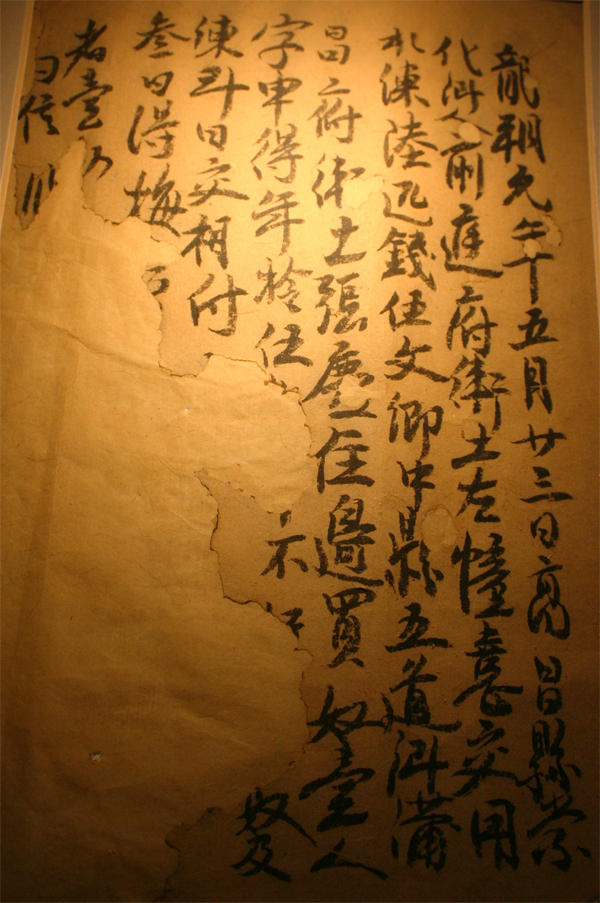 龍朔元年五月廿三日高昌縣崇
化鄉人前庭府衛士左憧憙交用
水練陸疋錢伍文柳中縣五道鄉蒲
昌府衛士張慶住邊買奴壹人
字申得年拾伍 不 奴及
練到日交相付
叁日得悔
者壹
信